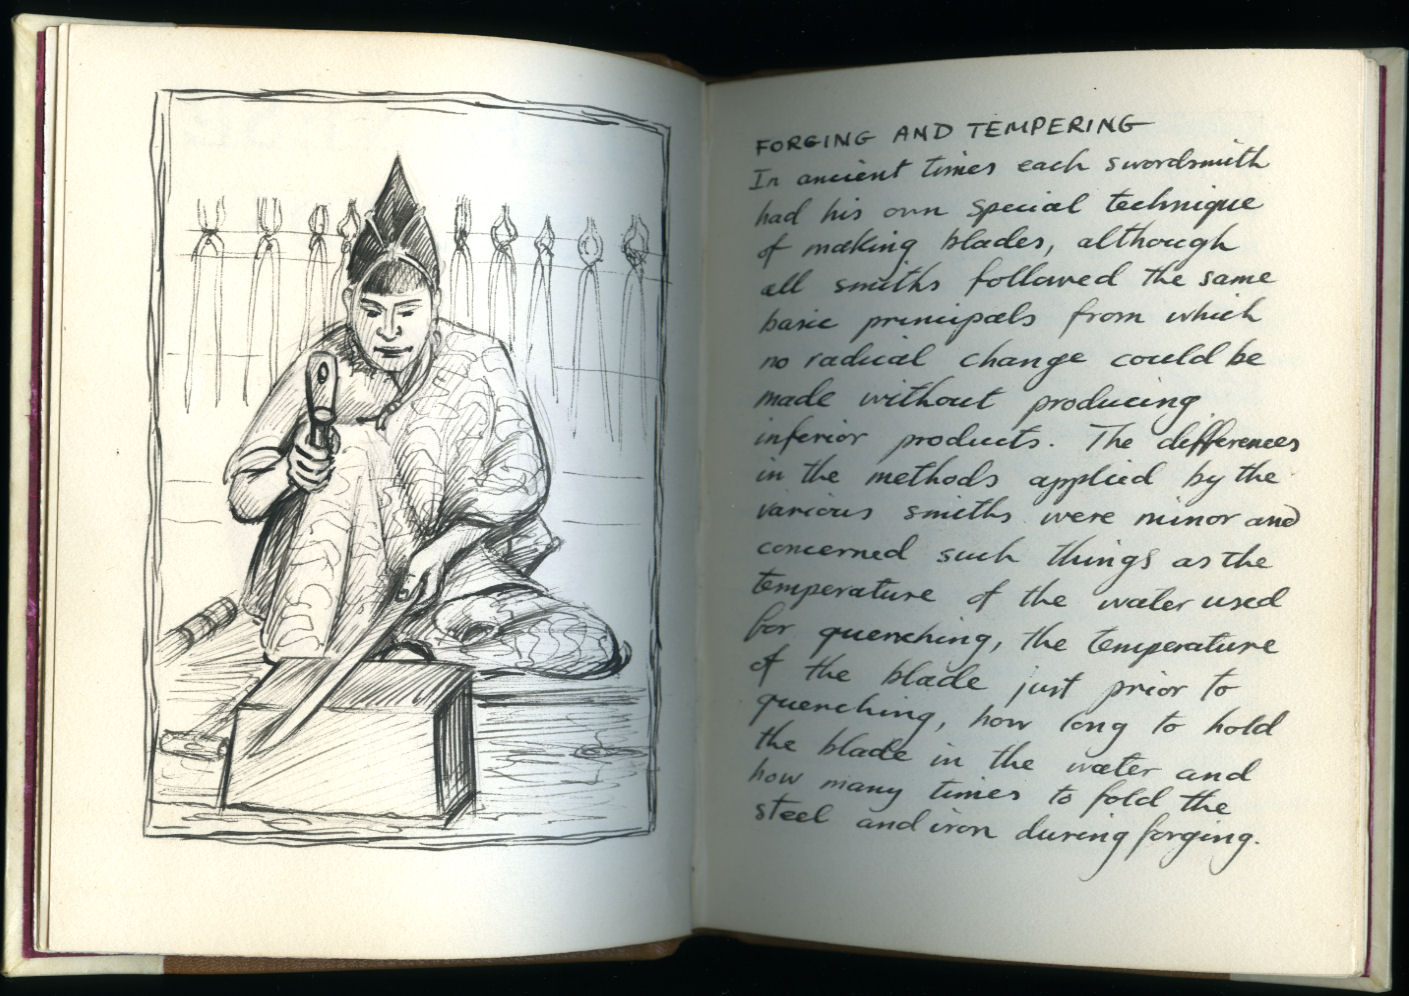 FORGING AND TEMPERING
In ancient times each swordsmith
had his own special technique
of making blades, although
all smiths followed the same
basic principals from which
no radical change could be
made without producing
inferior products. The differences
in the methods applied by the
various smiths were minor and
concerned such things as the
temperature of the water used
for quenching, the temperature
of the blade just prior to
quenching, how long to hold
the blade in the water and
how many times to fold the
steel and iron during forging.